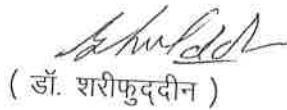 ( डॉ. शरीफुद्दीन )